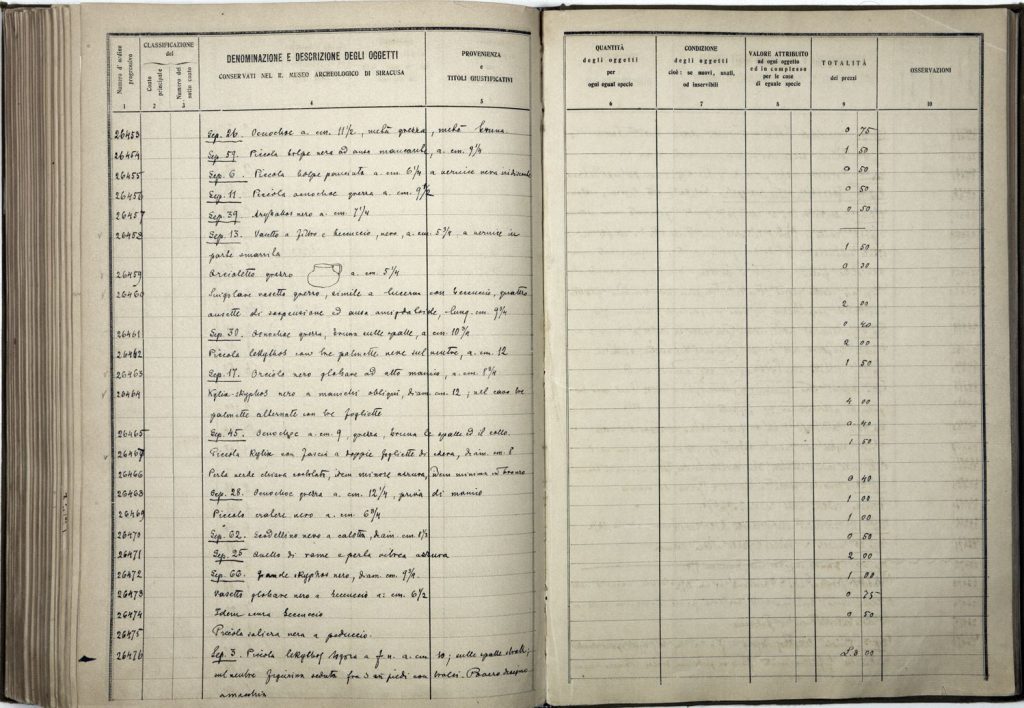 Numero d'ordine progressivo
CLASSIFICAZIONE
del
Conto principale
Numero del sotto conto
DENOMINAZIONE E DESCRIZIONE DEGLI OGGETTI
CONSERVATI NEL R. MUSEO ARCHEOLOGICO DI SIRACUSA
PROVENIENZA
e
TITOLI GIUSTIFICATIVI
1 2 3 4 5
26453 Sep. 26. Oenochoe a. cm. 11 1/2, metà grezza, metà bruna
26454 Sep. 59. Piccola bolpe nera ad ansa mancante, a. cm. 9 1/4
26455 Sep. 6. Piccola bolpe panciuta a. cm. 6 1/4 a vernice nera iridiscente
26456 Sep. 11. Piccola oinochoe grezza a. cm. 9 1/2
26457 Sep. 39. Aryballos nero a. cm. 7 1/4
26458 Sep. 13. Vasetto a filtro e beccuccio, nero, a. cm. 5 3/4, a vernice in
parte smarrita
26459 Orcioletto grezzo a. cm. 5 1/4
26460 Singolare vasetto grezzo, simile a lucerna con beccuccio, quattro
ansette di sospensione ed ansa amigdaloide, lung. cm. 9 3/4
26461 Sep. 30. Oenochoe grezza, bruna sulle spalle, a. cm. 10 3/4
26462 Piccola lekythos con tre palmette nere sul ventre, a. cm. 12
26463 Sep. 17. Orciolo nero globare ad alto manico, a. cm.
26464 Kylix-skyphos nero a manichi obliqui, diam. cm. 12; nel cavo tre
palmette alternate con tre fogliette
26465 Sep. 45. Oenochoe a. cm. 9, grezza, bruna le spalle ed il collo.
26467 Piccola Kylix con fascia a doppie fogliette di edera, diam. cm. 8
26466 Perla verde chiara costolata, idem minore azzurra, idem minima in bronzo
26468 Sep. 28. Oenochoe grezza a. cm. 12 1/4, priva di manico
26469 Piccolo cratere nero a. cm. 6 3/4
26470 Sep. 62. Scodellino nero a calotta, diam. cm. 8 1/2
26471 Sep. 25 Anello di rame e perla vitrea azzurra
26472 Sep. 66. Grande skyphos nero, diam. cm. 9 3/4.
26473 Vasetto globare nero a beccuccio a. cm. 6 1/2
26474 Idem senza beccuccio
26475 Piccola saliera nera a peduccio.
26476 Sep. 3. Piccola lekythos a f. n. a. cm. 10; sulle spalle
sul ventre figurina seduta fra 3 in piedi con tralci.
QUANTITÀ
degli oggetti
per
ogni egual specie
CONDIZIONE
degli oggetti
cioè: se nuovi, usati,
od inservibili
VALORE ATTRIBUITO
ad ogni oggetto
ed in complesso
per le cose
di eguale specie
TOTALITÀ
dei prezzi
OSSERVAZIONI
6 7 8 9 10
0 75
1 50
0 50
0 50
0 50
1 50
0 30
2 00
0 40
2 00
1 50
4 00
0 40
1 50
0 40
1 00
1 00
0 50
2 00
1 00
0 75
0 50